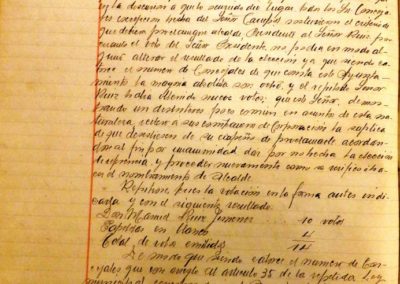 y la discusión a que lo ocupado dio lugar todos los Conceja-
les excepción hecha del Señor Campos sostuvieron el criterio de
que debían proclamar alcalde Presidente al Señor Ruiz por
cuanto el voto del Señor Presidente no podía en modo al
guno alterar el resultado de la elección ya que siendo ca
torce el número de Concejales de que consta este Ayunta-
miento la mayoría absoluta son ocho, y el repetido Señor
Ruiz había obtenido nueve votos; que este Señor, demos-
trando un desinterés poco común en asunto de esta na
turaleza, rogó a sus compañeros de Corporación la súplica
de que desistiesen de su empeño de proclamarle acordán-
dose al fin por unanimidad dar por no hecha la elección
de referencia, y proceder nuevamente como se verificó
en el nombramiento de Alcalde.
Repítese pues la votación en la forma antes indi
cada y con el siguiente resultado
Don Manuel Ruiz Jimenez 10 votos
Papeletas en blanco 4
Total de votos emitidos 14
De modo que siendo catorce el número de Con-
cejales que con arreglo al artículo 35 de la repetida Ley